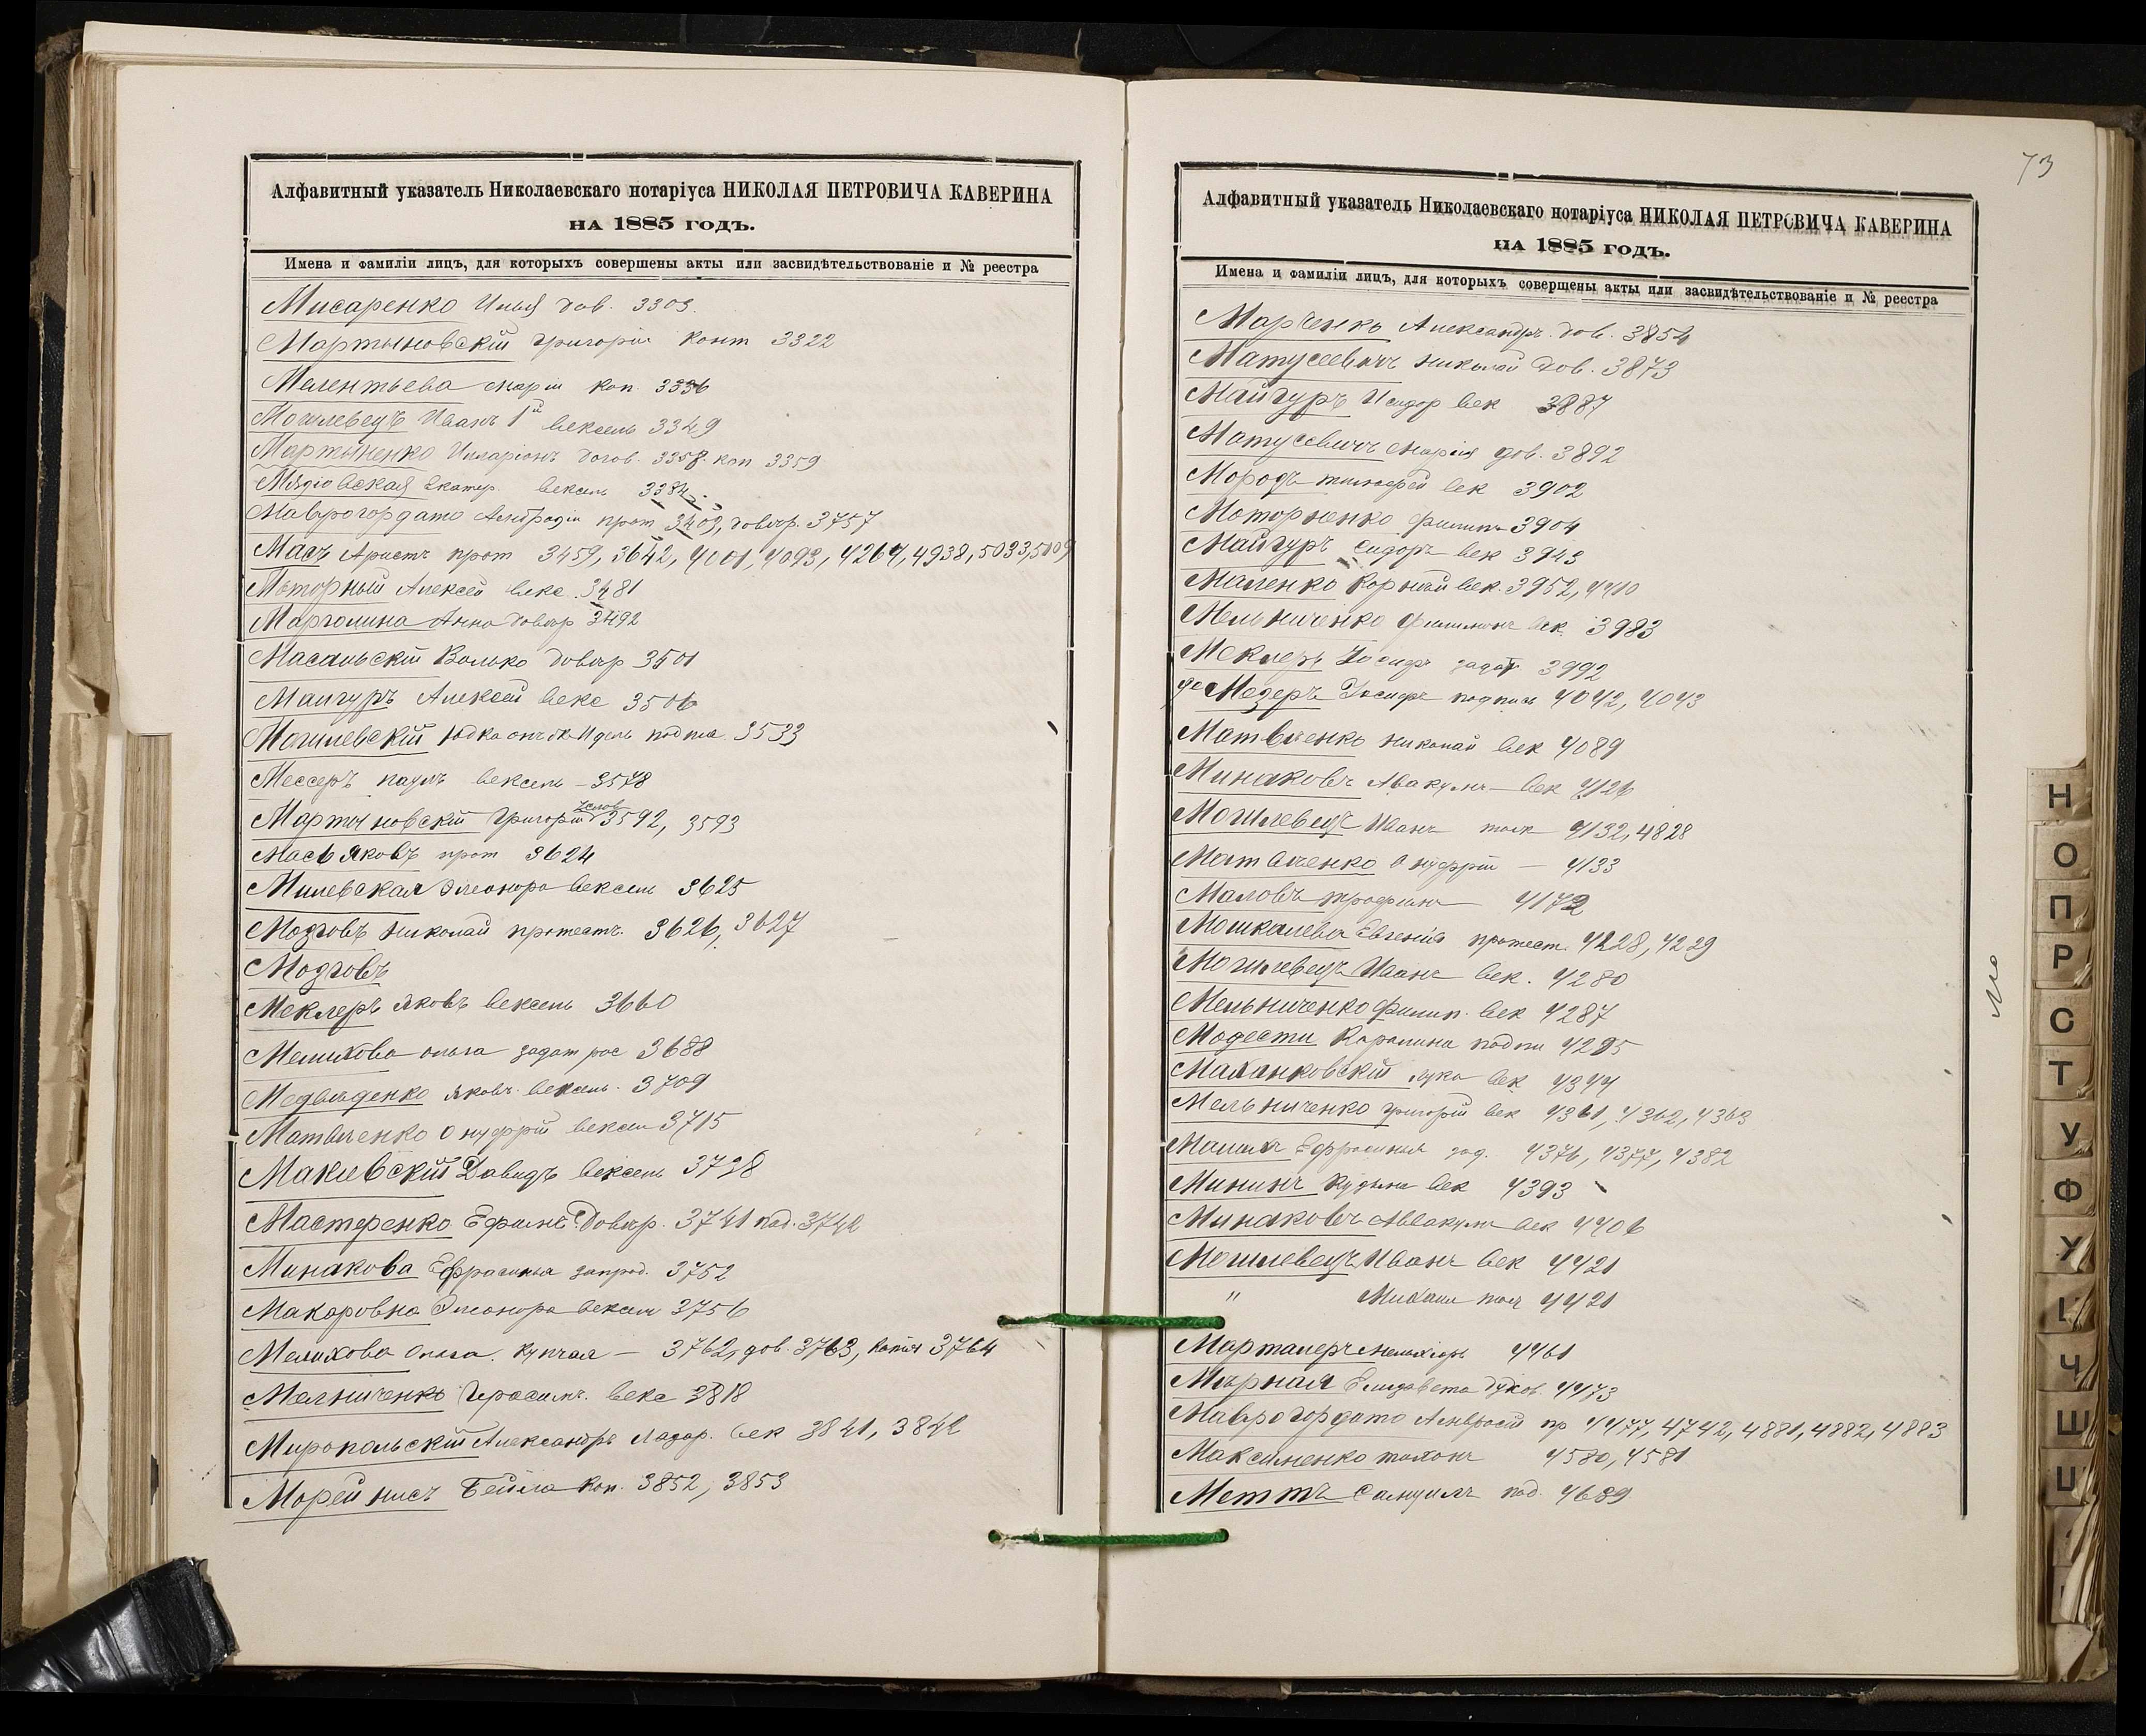 Алфавитный указатель Николаевскаго нотаріуса НИКОЛАЯ ПЕТРОВИЧА КАВЕРИНА
НА 1885 ГОДЪ.
Имена и фамиліи лицъ, для которыхъ совершены акты или засвидѣтельствованіе и № реестра
Мисаренко Илья дов. 3303.
Мартыновскій Григорій конт 3322
Мелентьева Марія коп 3336
Могилевецъ Иванъ 1й вексель 3349
Мартыненко Иларіонъ догов. 3358. коп 3359
Екатер. вексель 3384
Маврогордато прот 3403, довѣр. 3757
Маъ Аристъ прот 3459, 3642, 4001, 4093, 4264, 4938, 5033, 5109
Моторный Алексѣй векс. 3481
Марголина Анна довѣр 3492
Масальскій Волько довѣр 3501
Мангуръ Алексѣй векс 3506
Могилевскій Юдка онъ же Идель подпис 3533
Мессеръ Наумъ вексель — 3578
Мартыновскій Григорій услов 3592, 3593
Масъ Яковъ прот 3624
Милевская Элеонора вексель 3625
Мозговъ Николай протестъ. 3626, 3627
Мозговъ
Меклеръ Яковъ вексель 3660
Мелихова Ольга задат рос 3688
Медвѣденко Яковъ вексель. 3709
Матвѣенко Онуфрій вексел 3715
Макіевскій Давидъ вексель 3738
Мастеренко Ефимъ Довѣр. 3741 под. 3742
Минакова Ефросинья запрод. 3752
Макаровна Элеонора вексел 3756
Мелихова Ольга. купчая — 3762, дов. 3763, копія 3764
Мельниченко Герасимъ. векс 3818
Миропольскій Александръ Лазар. век 3841, 3842
Морейнисъ Бейла коп. 3852, 3853
73
Алфавитный указатель Николаевскаго нотаріуса НИКОЛАЯ ПЕТРОВИЧА КАВЕРИНА
НА 1885 ГОДЪ.
Имена и фамиліи лицъ, для которыхъ совершены акты или засвидѣтельствованіе и № реестра
Марченко Александръ. дов. 3854
Матусевичъ Николай дов. 3873
Майгуръ Исидор век 3887
Матусевичъ Марія дов. 3892
Мородъ Тимофей век 3902
Моторненко Филипъ 3904
Майгуръ Сидоръ век 3943
Маленко Корній век. 3952, 4410
Мельниченко Филимонъ век. 3983
Меклеръ Іосифъ задат 3992
де Медеръ Іосифъ подпись 4042, 4043
Матвѣенко Николай век 4089
Минаковъ Авакумъ — век 4126
Могилевецъ Иванъ 4132, 4828
Матвѣенко Онуфрій — 4133
Маловъ Трофимъ 4172
Мошкалева Евгенія протест. 4228, 4229
Могилевецъ Иванъ век. 4280
Мельниченко Филип. век 4287
Модести Каролина подпи 4295
Маханковскій Лука век 4344
Мельниченко Григорій век 4361, 4362, 4363
Ефросинья зад. 4376, 4377, 4382
Мининъ Кузьма век 4393
Минаковъ Аввакумъ век 4406
Могилевецъ Иванъ век 4421
" Михаил 4421
Марталеръ Мельхіоръ 4461
Мѣрная Елизавета духов. 4473
Маврогордато Амвросій пр 4477, 4742, 4881, 4882, 4883
Максименко 4580, 4581
Меттъ Самуилъ под. 4689
Мо
Н
О
П
Р
С
Т
У
Ф
Х
Ц
Ч
Ш
Щ